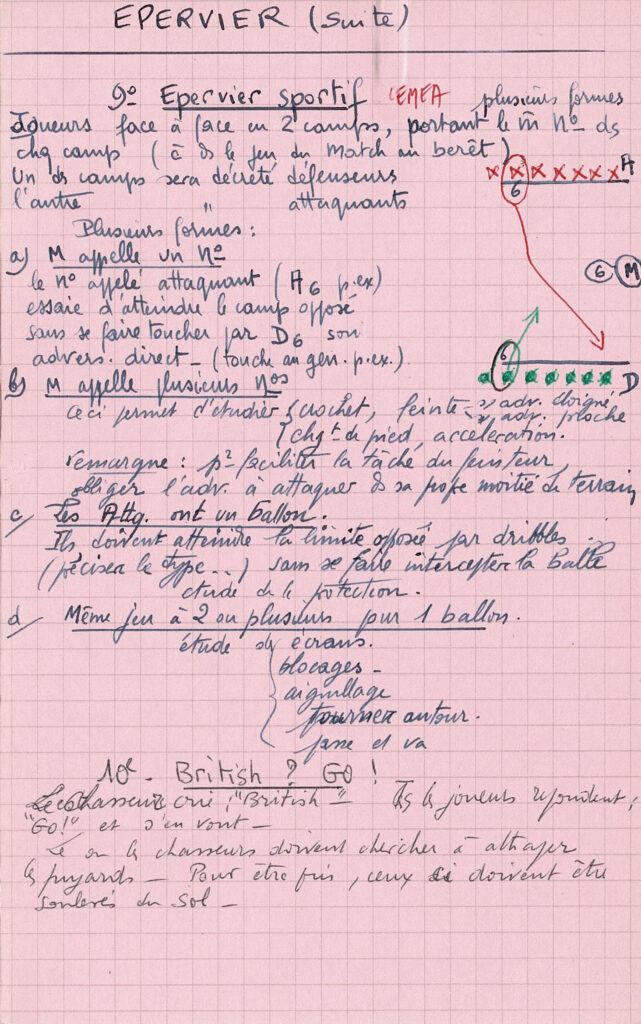 EPERVIER (suite)
9º Epervier sportif CEMEA plusieurs formes
Joueurs face à face en 2 camps, portant le m̄ Nº ds
chq camp (c̄ ds le jeu du Match au berêt)
Un ds camps sera décrété défenseurs
l'autre " attaquants
X X X X X X X A
6
Plusieurs formes :
a) M appelle un Nº
le nº appelé attaquant (A6 p.ex)
essaie d'atteindre le camp opposé
sans se faire toucher par D6 son
advers. direct _ (touche au gen. p.ex.)
6 M
6
D
b) M appelle plusieurs nos
ceci permet d'étudier { crochet, feinte adv. éloigné
adv. proche
{ chgt de pied, acceleration.
remarque : pr faciliter la tâche du feinteur,
obliger l'adv. à attaquer ds sa prope moitié de terrain
c/ Les Attq. ont un ballon.
Ils doivent atteindre la limite opposée par dribbles
(préciser le type...) sans se faire intercepter la balle
étude de la protection.
d/ Même jeu à 2 ou plusieurs pour 1 ballon.
étude ds écrans.
blocages -
aiguillage
tourner autour.
passe et va
10º - British ? Go !
Le chasseur crie : "British" - Ts les joueurs répondent,
"Go!" et s'en vont -
Le ou les chasseurs doivent chercher à attraper
les fuyards - Pour être pris, ceux ci doivent être
soulevés du sol -